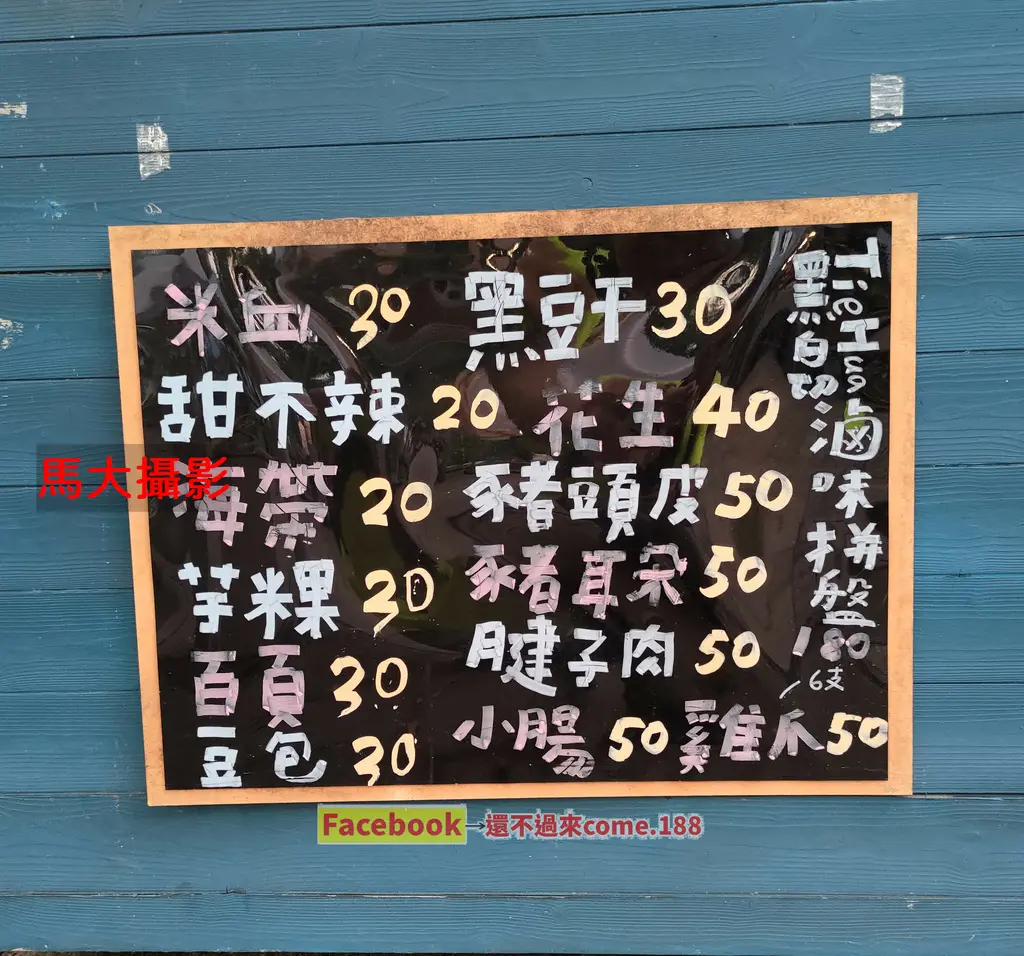 米血 30
甜不辣 20
海帶 20
芋粿 20
百頁 30
豆包 30
黑豆干 30
花生 40
豬頭皮 50
豬耳朵 50
腱子肉 50
小腸 50
雞爪 50
6支
黑白切滷味拼盤
180
馬大攝影
Facebook→還不過來come.188